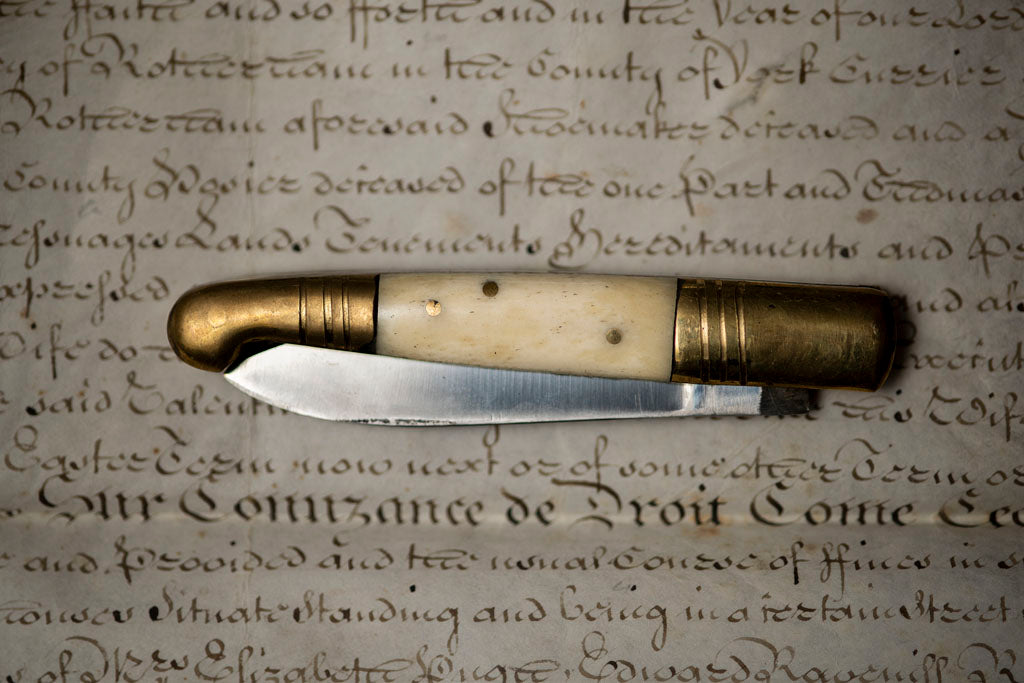 the Faith and so fforth and in the Year of our Lord
of Rotherham in the County of York Currier
Rotherham aforesaid Shoemaker deceased and
County Hosier deceased of the one Part and Thomas
Lands Tenements Hereditaments and
expressed and
Wife do
said Valentine his Wife
Easter Term now next or of some other Term or
Sur Conuzance de Droit Come Ceo
and Provided and the usual Course of ffines in
Situate Standing and being in a certain Street
of Mrs Elizabeth Edward